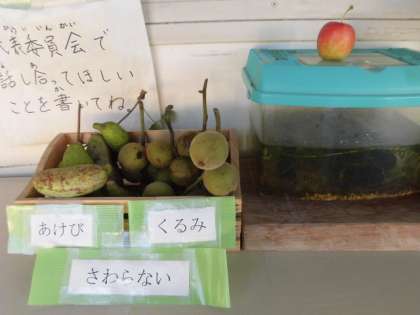 代表委員会で
話し合ってほしい
ことを書いてね。
あけび
くるみ
さわらない